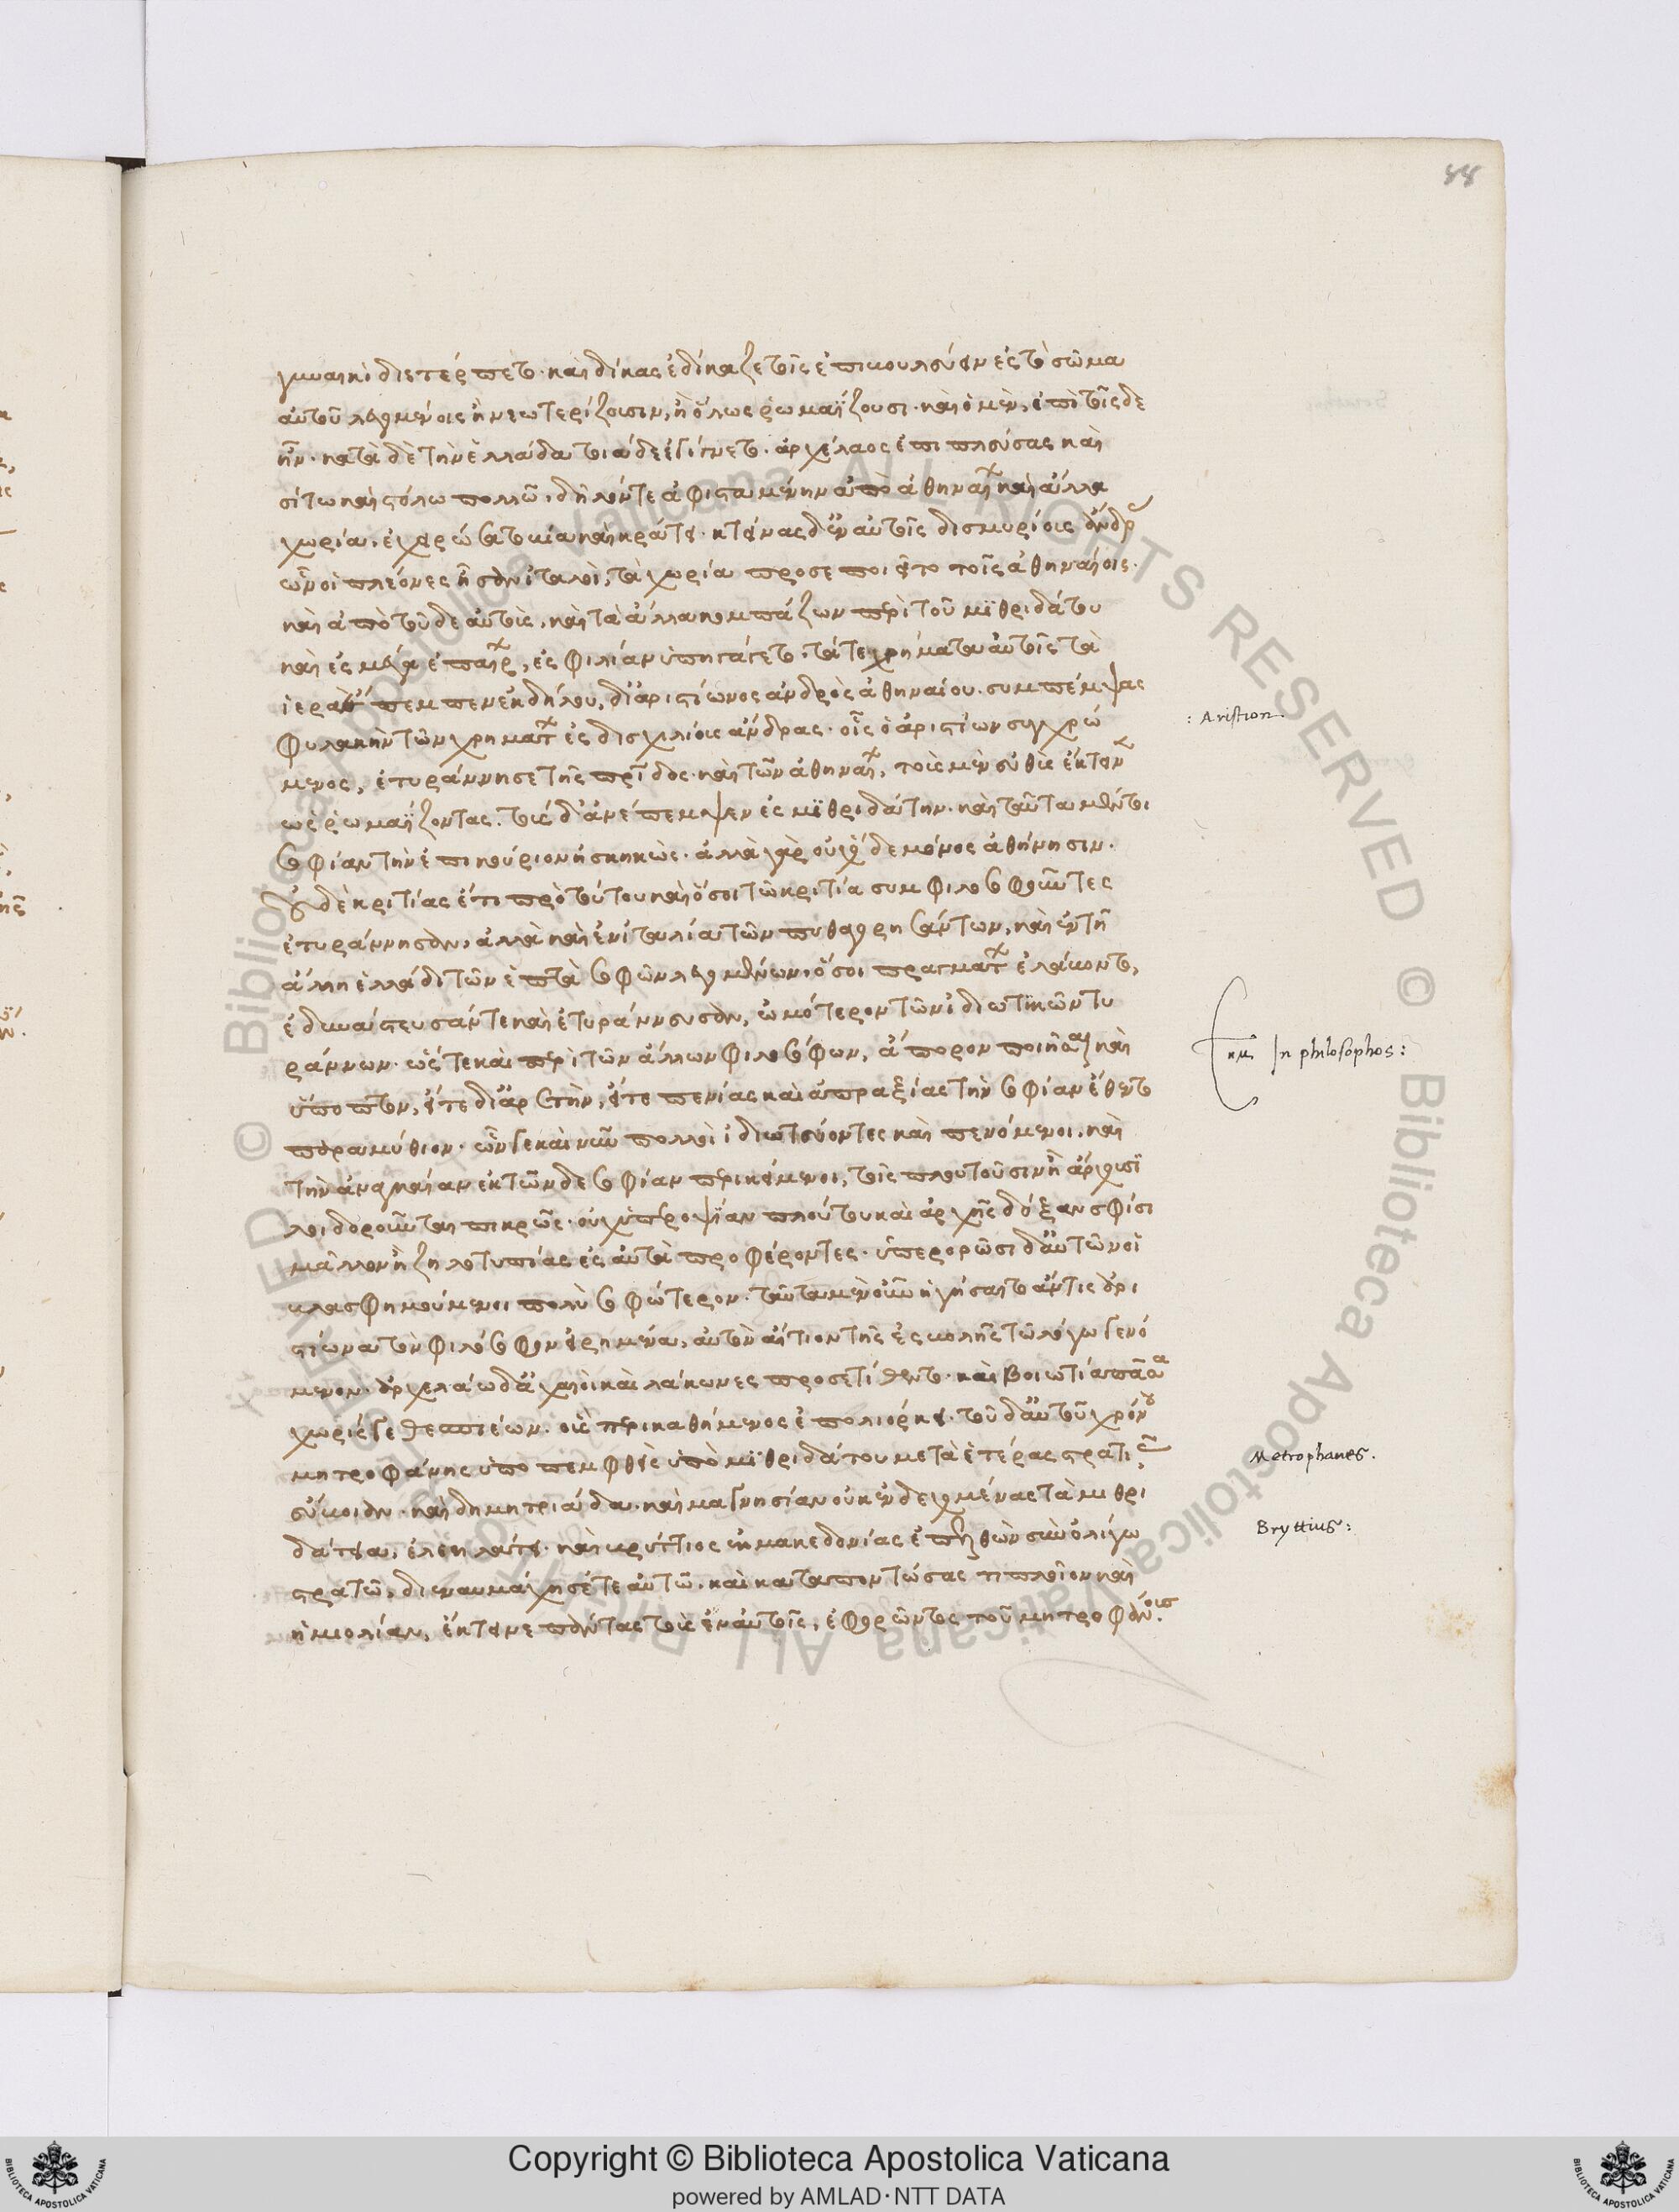 γυναικὶ διετέρπετο. καὶ δίκας ἐδίκαζε τοῖς ἐπιβουλεύειν ἐς τὸ σῶμα
αὐτοῦ λεγομένοις ἢ νεωτερίζουσιν, ἢ ὅλως ῥωμαΐζουσι. καὶ ὁ μὲν, ἐπὶ τοῖσδε
ἦν. κατὰ δὲ τὴν ἑλλάδα τοιάδε ἐγίγνετο. ἀρχέλαος ἐπιπλεύσας καὶ
σίτω καὶ στόλω πολλῶ, δῆλόν τε ἀφισταμένην ἀπὸ ἀθηναίων καὶ ἄλλα
χωρία, ἐχειρώσατο βία καὶ κράτει. κτείνας δ' ἐν αὐτοῖς δισμυρίους ἄνδρας
ὧν οἱ πλέονες ἦσαν ἰταλοὶ, τὰ χωρία προσεποιεῖτο τοῖς ἀθηναίοις.
καὶ ἀπὸ τοῦδε αὐτοὺς, καὶ τὰ ἄλλα κομπάζων περὶ τοῦ μϊθριδάτου
καὶ ἐς μέγα ἐπαίρων, ἐς φιλίαν ὑπηγάγετο. τά τε χρήματα αὐτοῖς τὰ
ἱερὰ ἔπεμπεν ἐκ δήλου, δι' ἀριστίωνος ἀνδρὸς ἀθηναίου. συμπέμψας
φυλακὴν τῶν χρημάτων ἐς δισχιλίους ἄνδρας. οἷς ὁ ἀριστίων συγχρώ
: Aristion.
μενος, ἐτυράννησε τῆς πατρίδος. καὶ τῶν ἀθηναίων, τοὺς μὲν εὐθὺς ἔκτεινεν
ὡς ῥωμαΐζοντας. τοὺς δ' ἀνέπεμψεν ἐς μϊθριδάτην. καὶ ταῦτα μέντοι
σοφίαν τὴν ἐπικούριον ἠσκηκώς. ἀλλὰ γὰρ οὐχ' ὅδε μόνος ἀθήνησιν.
οὐδὲ κριτίας ἔτι πρὸ τούτου καὶ ὅσοι τῶ κριτία συμφιλοσοφοῦντες
ἐτυράννησαν, ἀλλὰ καὶ ἐν ἰταλία τῶν πυθαγορησάντων, καὶ ἐν τῆ
ἄλλη ἑλλάδι τῶν ἑπτὰ σοφῶν λεγομένων, ὅσοι πραγμάτων ἐλάβοντο,
ἐδυνάστευσάν τε καὶ ἐτυράννευσαν, ὠμότερον τῶν ἰδιωτικῶν τυ
ράννων. ὥστε καὶ περὶ τῶν ἄλλων φιλοσόφων, ἄπορον ποιῆσαι καὶ
In philosophos:
ὕποπτον, εἴτε δι' ἀρετὴν, εἴτε πενίας καὶ ἀπραξίας τὴν σοφίαν ἔθεντο
παραμύθιον. ὧν γε καὶ νῦν πολλοὶ ἰδιωτεύοντες καὶ πενόμενοι. καὶ
τὴν ἀναγκαίαν ἐκ τῶνδε σοφίαν περικείμενοι, τοῖς πλουτοῦσιν ἢ ἄρχουσϊ
λοιδοροῦνται πικρῶς. οὐχ ὑπεροψίαν πλούτου καὶ ἀρχῆς δόξαν σφίσι
μᾶλλον ἢ ζηλοτυπίας ἐς αὐτὰ προφέροντες. ὑπερορῶσι δ' αὐτῶν οἱ
βλασφημούμενοι πολὺ σοφώτερον. ταῦτα μὲν οὖν ἡγήσαιτο ἄν τις ἀρι
στίωνα τὸν φιλόσοφον εἰρημένα, αὐτὸν αἴτιον τῆς ἐκβολῆς τῶ λόγω γενό
μενον. ἀρχελάω δ' ἀχαιοὶ καὶ λάκωνες προσετίθεντο. καὶ βοιωτία πᾶσα
χωρίς γε θεσπιέων. οὓς περικαθήμενος ἐπολιόρκει. τοῦ δ' αὐτοῦ χρόνου
μητροφάνης ὑποπεμφθεὶς ὑπὸ μϊθριδάτου μετὰ ἑτέρας στρατιᾶς
Metrophanes.
εὔβοιαν. καὶ δημητριάδα. καὶ μαγνησίαν οὐκ ἐνδεχομένας τὰ μιθρι
δάτεια, ἐλεηλάτει. καὶ βρύττιος ἐκ μακεδονίας ἐπελθὼν σὺν ὀλίγω
Bryttius:
στρατῶ, διεναυμάχησέ τε αὐτῶ. καὶ καταποντώσας τι πλοῖον καὶ
ἡμιολίαν, ἔκτεινε πάντας τοὺς ἐν αὐτοῖς, ἐφορῶντος τοῦ μητροφάνους.
Copyright © Biblioteca Apostolica Vaticana
powered by AMLAD・NTT DATA